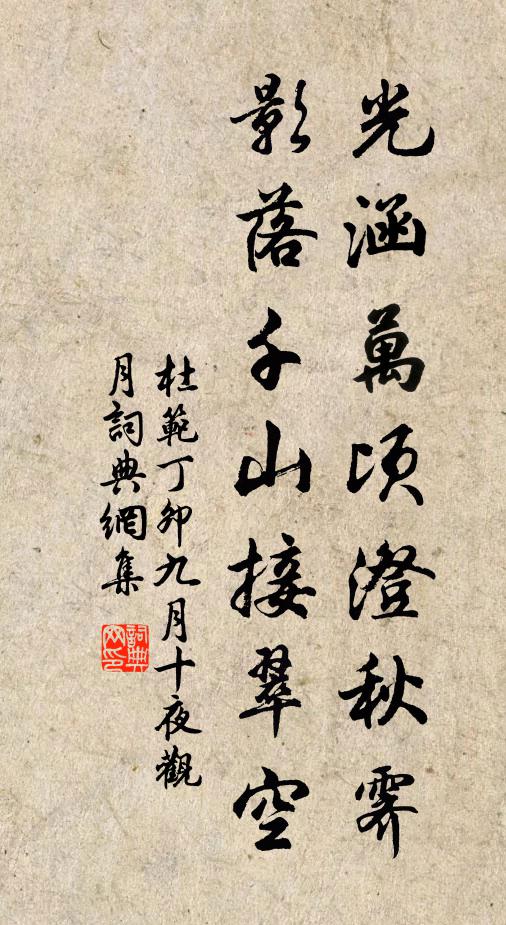 光涵萬頃澄秋霽
影落千山接翠空
杜範丁卯九月十夜觀
月詞典網集
詞典网印